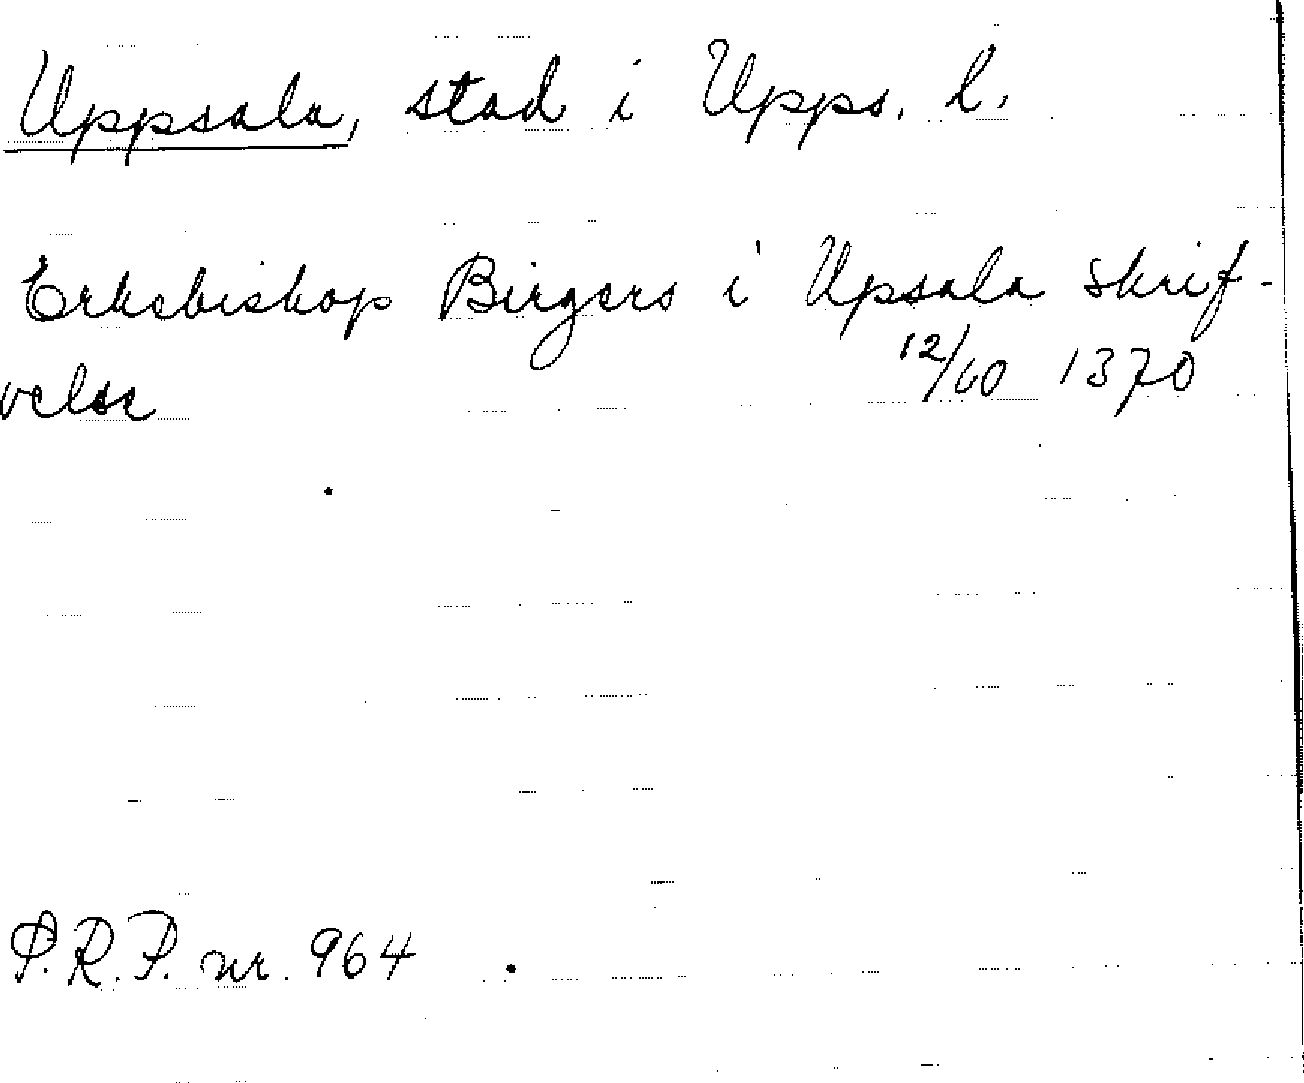 Uppsala, stad i Upps. l.
Erkebiskop Birgers i Upsala skrif-
velse 12/10 1370
P.R.P. nr. 964